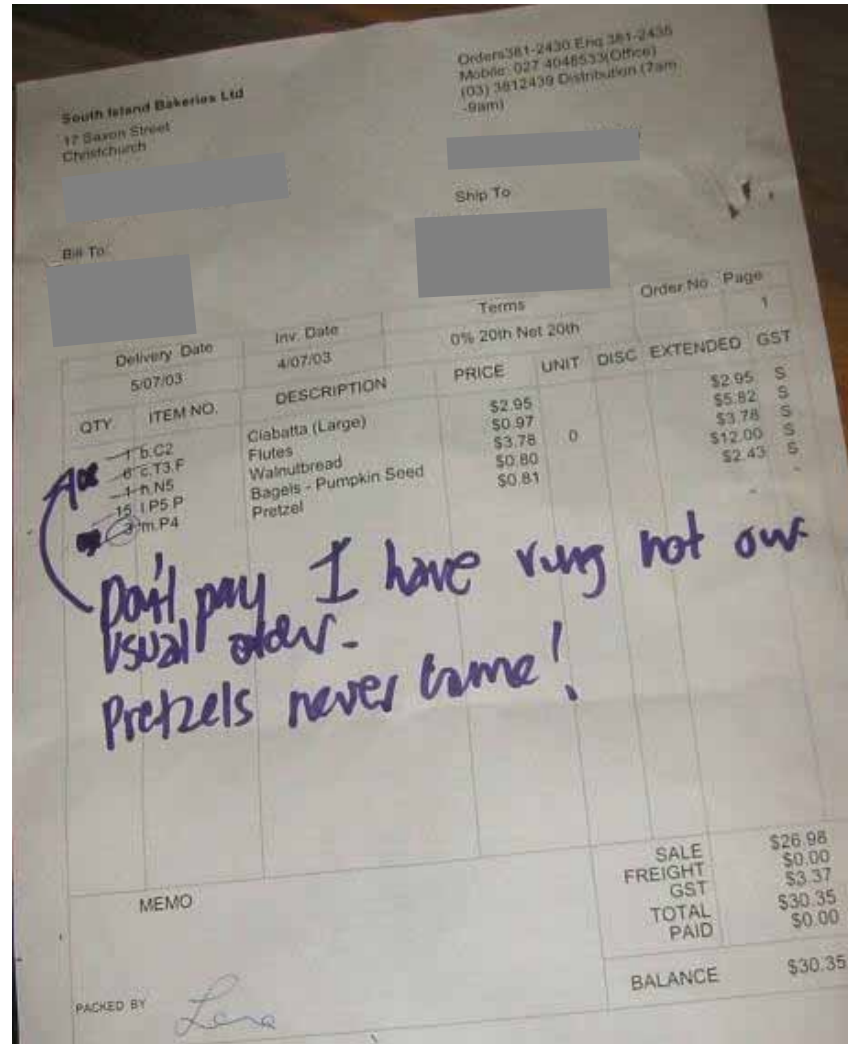 South Island Bakeries Ltd
17 Saxon Street
Christchurch
Orders381-2430 Enq 381-2435
Mobile: 027 4048533(Office)
(03) 3812439 Distribution (7am
-9am)
Ship To
Bill To:
Delivery Date Inv. Date Terms Order No. Page
5/07/03 4/07/03 0% 20th Net 20th 1
QTY. ITEM NO. DESCRIPTION PRICE UNIT DISC EXTENDED GST
1 b.C2 Ciabatta (Large) $2.95 $2.95 S
6 c.T3.F Flutes $0.97 $5.82 S
1 h.N5 Walnutbread $3.78 0 $3.78 S
15 l.P5.P Bagels - Pumpkin Seed $0.80 $12.00 S
3 m.P4 Pretzel $0.81 $2.43 S
Don't pay I have rung not our
usual order.
Pretzels never came!
SALE $26.98
FREIGHT $0.00
GST $3.37
TOTAL $30.35
PAID $0.00
MEMO
BALANCE $30.35
PACKED BY Lena